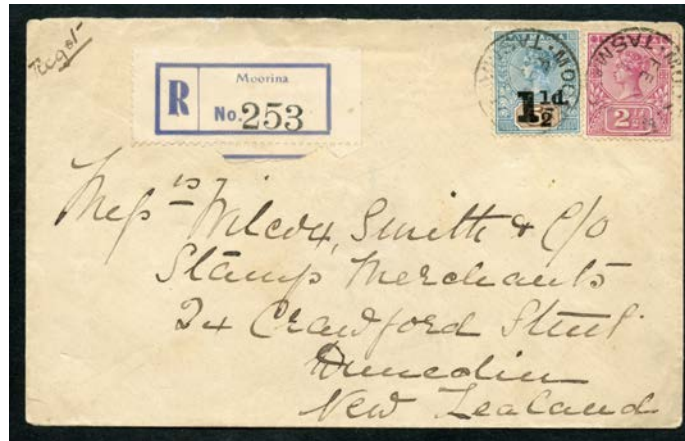 Regd-
R
Moorina
No. 253
1½d.
2
TASMA
Messrs Wilcox, Smith & C/o
Stamp Merchants
24 Crawford Street
Dunedin
New Zealand